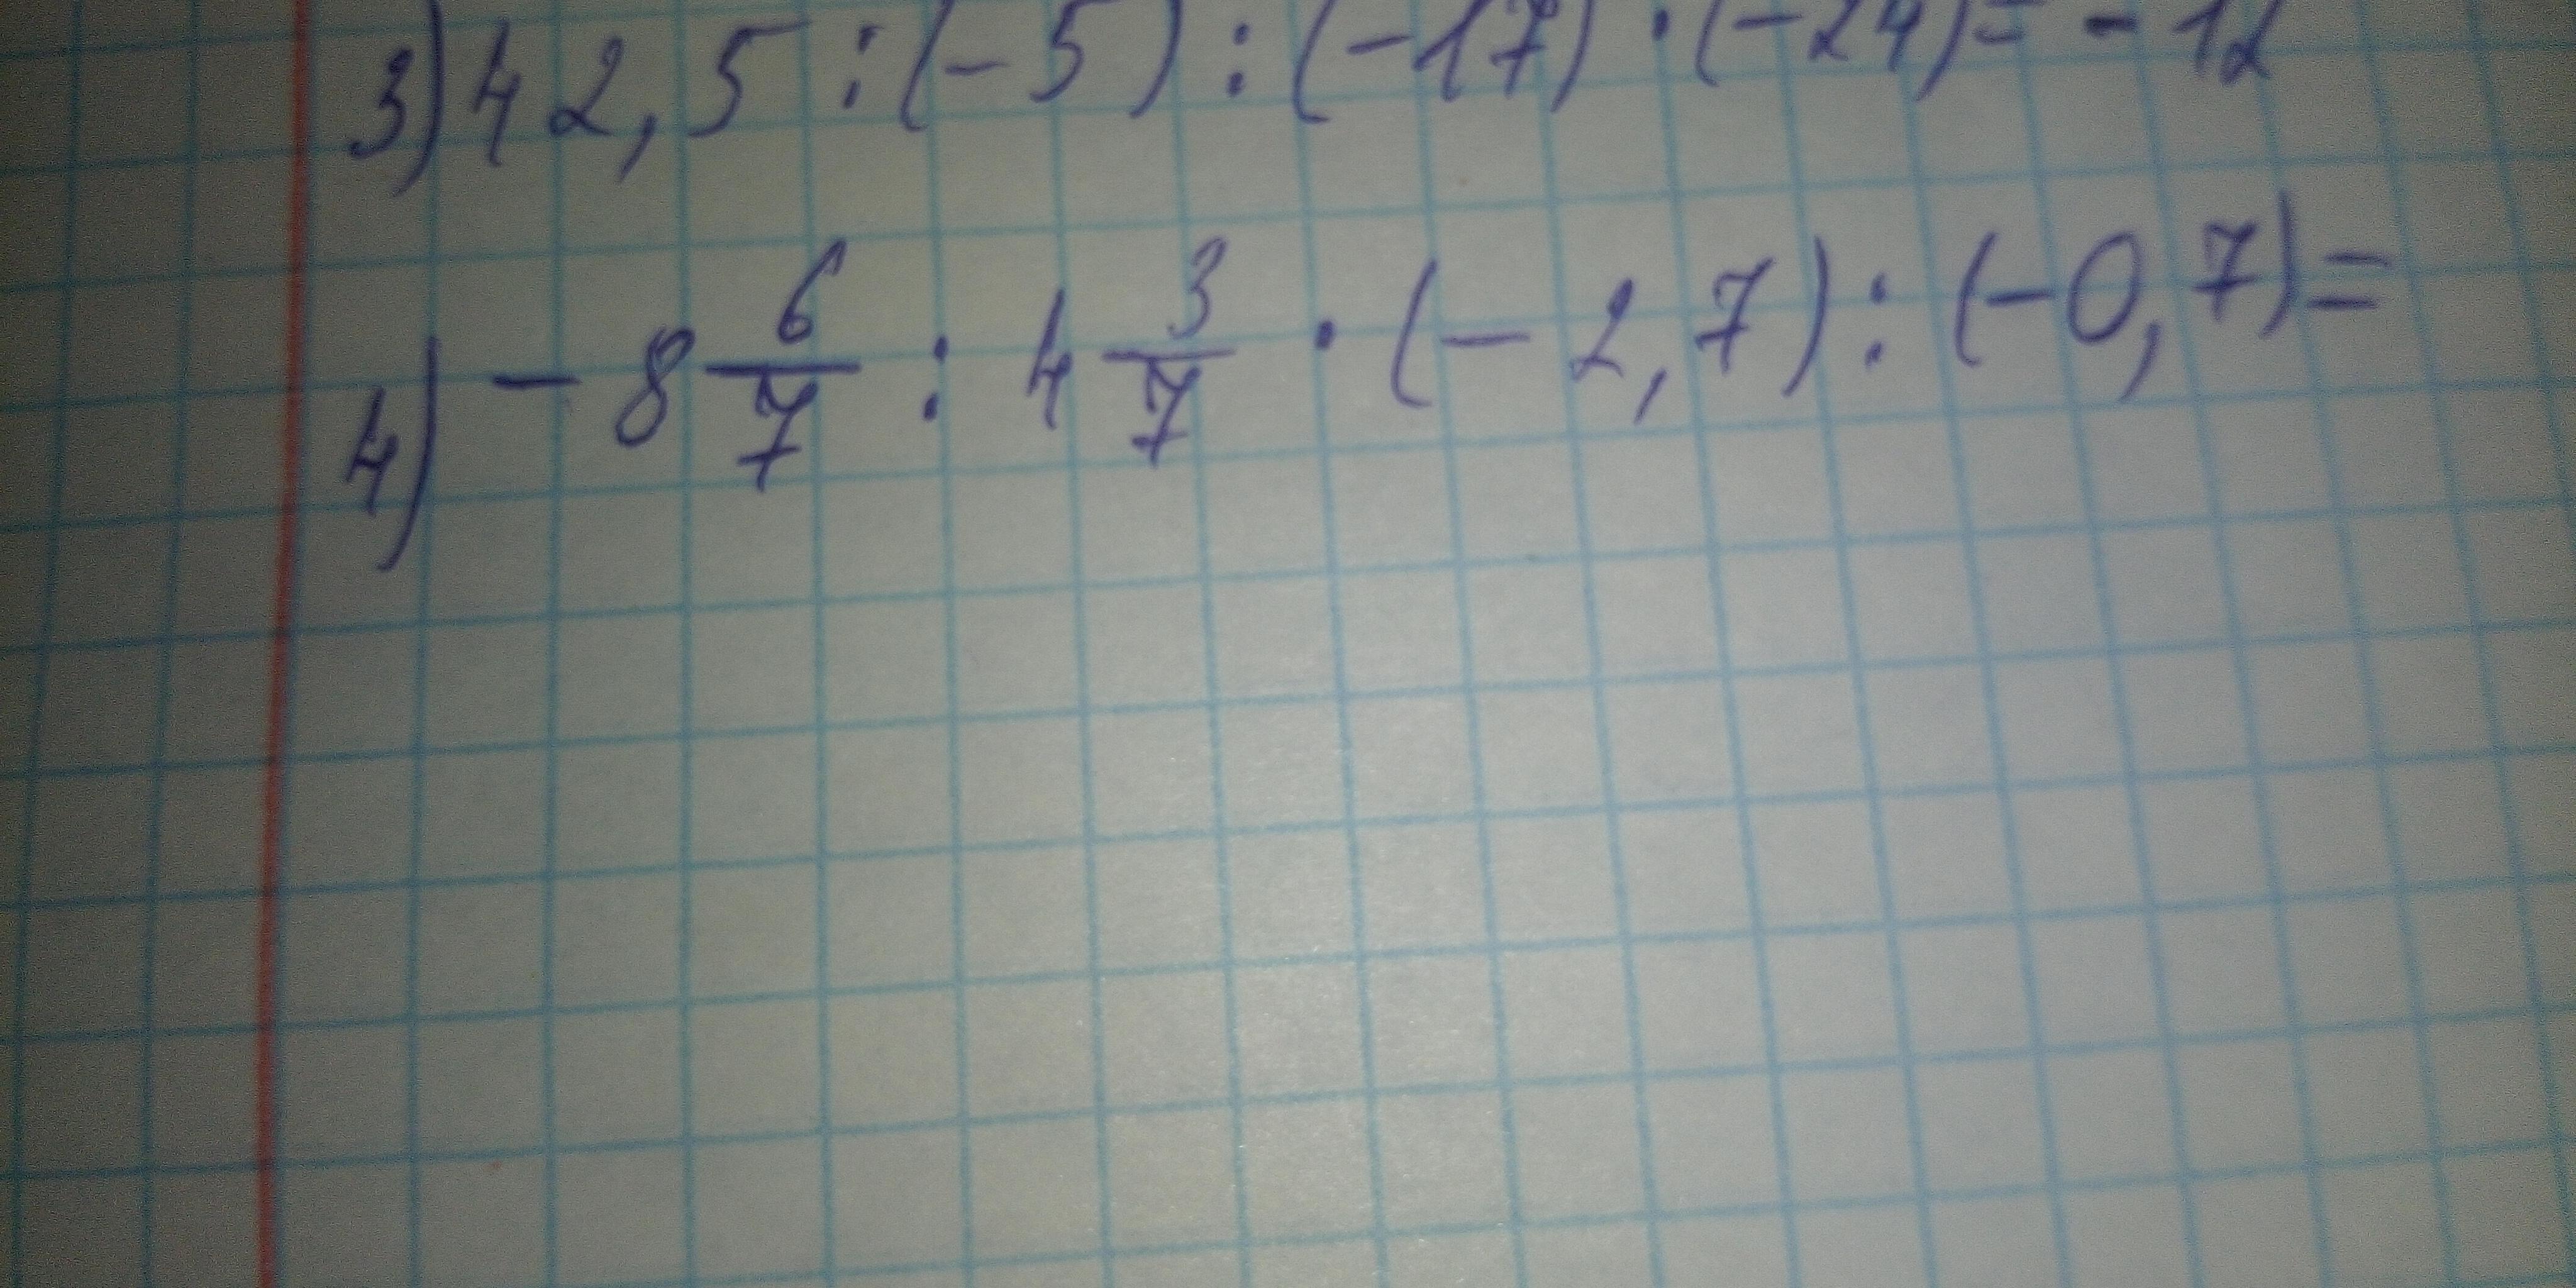 3) 42,5 : (-5) : (-17) · (-24) = -12
4) -8 6/7 : 4 3/7 · (-2,7) : (-0,7) =